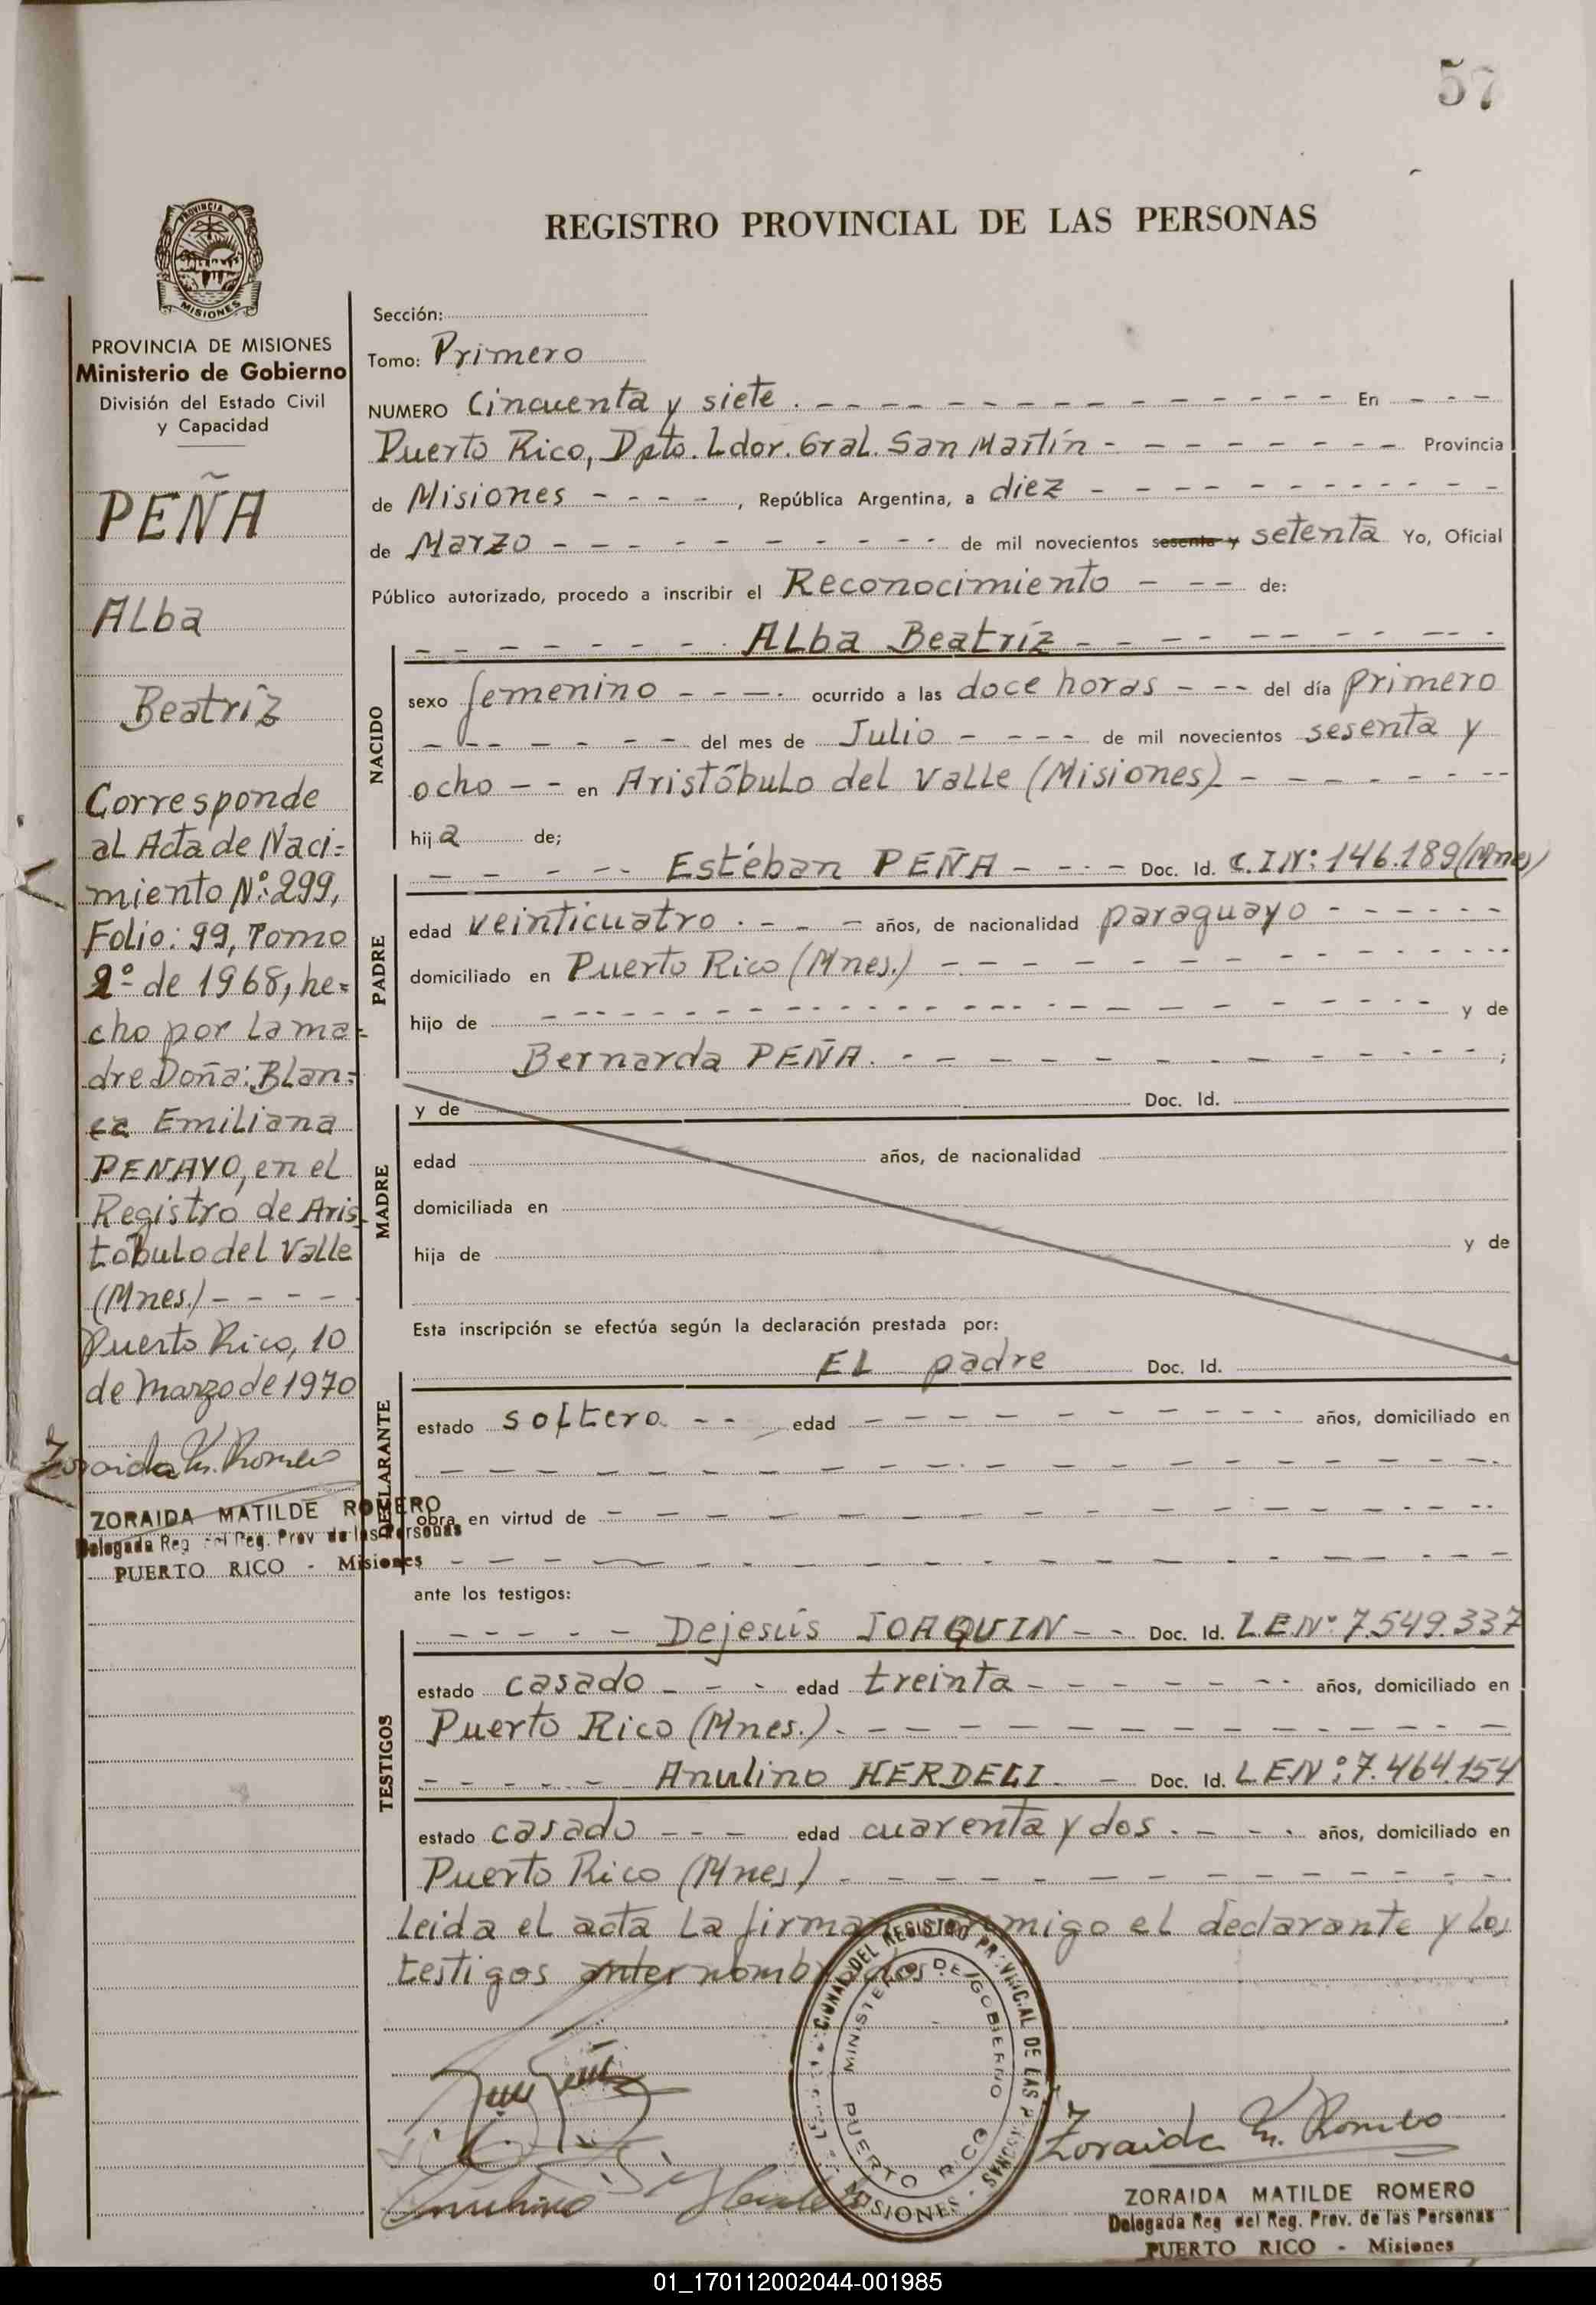 57
PROVINCIA DE
MISIONES
REGISTRO PROVINCIAL DE LAS PERSONAS
PROVINCIA DE MISIONES
Ministerio de Gobierno
División del Estado Civil
y Capacidad
PEÑA
ALba
Beatríz
Corresponde
al Acta de Naci=
miento Nº:299,
Folio: 99, Tomo
2º de 1968, he=
cho por La ma=
dre Doña: BLan=
ca Emiliana
PENAYO, en el
Registro de Aris
tóbulo del Valle
(Mnes.) - - - -
Puerto Rico, 10
de Marzo de 1970
Zoraida M. Romero
ZORAIDA MATILDE ROMERO
Delegada Reg del Reg. Prov de las Personas
PUERTO RICO - Misiones
Sección:
Tomo: Primero
NUMERO Cincuenta y siete. - - - - - - - - - - - - - En - - -
Puerto Rico, Dpto. Ldor. Gral. San Martín - - - - - - - - Provincia
de Misiones - - - -, República Argentina, a diez - - - - - - - - - - -
de Marzo - - - - - - - - - - de mil novecientos sesenta y setenta Yo, Oficial
Público autorizado, procedo a inscribir el Reconocimiento - - - de:
NACIDO
- - - - - - - - ALba Beatríz - - - - - - - - - -
sexo femenino - - - -. ocurrido a las doce horas - - - del día primero
- - - - - - - del mes de Julio - - - - de mil novecientos sesenta y
ocho - - en Aristóbulo del Valle (Misiones) - - - - - - - -
hija de;
PADRE
- - - - - Estéban PEÑA - - - - Doc. Id. C.IN: 146.189 (Mnes)
edad veinticuatro - - - años, de nacionalidad paraguayo - - - - - -
domiciliado en Puerto Rico (Mnes.) - - - - - - - - - - - -
hijo de - - - - - - - - - - - - - - - - - - - y de
Bernarda PEÑA. - - - - - - - - - - - - ;
MADRE
y de Doc. Id.
edad años, de nacionalidad
domiciliada en
hija de y de
Esta inscripción se efectúa según la declaración prestada por:
DECLARANTE
EL padre Doc. Id.
estado soltero - - edad - - - - - - - - - años, domiciliado en
- - - - - - - - - - - - - - - - - - -
obra en virtud de - - - - - - - - - - - - - - - -
- - - - - - - - - - - - - - - - - -
ante los testigos:
TESTIGOS
- - - - - Dejesús JOAQUIN - - Doc. Id. L.E.Nº 7.549.337
estado casado - - - edad treinta - - - - - - - años, domiciliado en
Puerto Rico (Mnes.). - - - - - - - - - - - - - -
- - - - - - Anulino HERDELI - Doc. Id. L.E.Nº: 7.464.154
estado casado - - - edad cuarenta y dos. - - - años, domiciliado en
Puerto Rico (Mnes) - - - - - - - - - - - - -
Leida el acta La firman conmigo el declarante y los
testigos antes nombrados.
REGISTRO PROVINCIAL DE LAS PERSONAS
MINISTERIO DE GOBIERNO
PUERTO RICO
MISIONES
Zoraida M. Romero
ZORAIDA MATILDE ROMERO
Delegada Reg del Reg. Prov. de las Personas
PUERTO RICO - Misiones
01_170112002044-001985